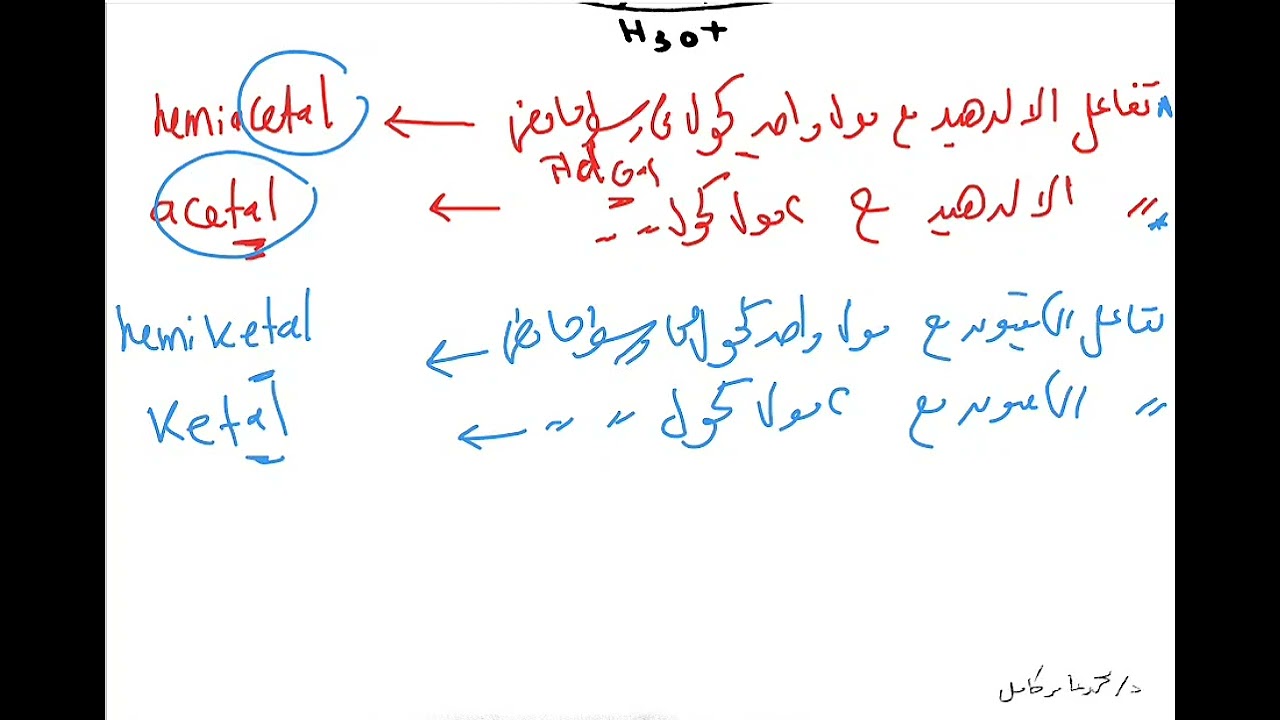 H3O+
* تفاعل الالدهيد مع مول واحد كحول في وسط حامضي ← hemiacetal
HCl Gas
" الالدهيد مع 2 مول كحول " " ← acetal
تفاعل الكيتون مع مول واحد كحول في وسط حامضي ← hemiketal
" الكيتون مع 2 مول كحول " " ← ketal